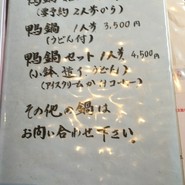 (要予約 2人前から)
鴨鍋 1人前 3,500円
(うどん付)
鴨鍋セット 1人前 4,500円
(アイスクリーム か コーヒー)
その他の鍋は
お問い合わせ下さい